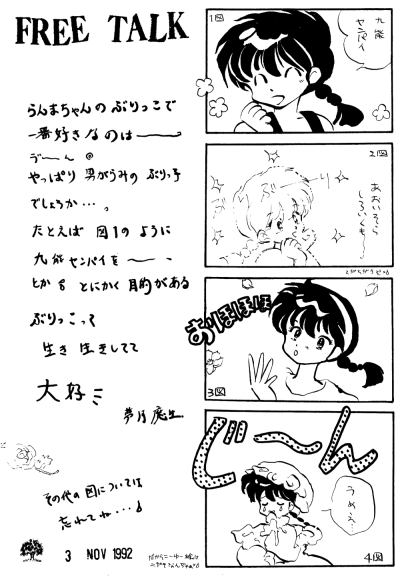 FREE TALK
らんまちゃんの ぶりっこで
一番好きなのは〜〜
う〜〜ん
やっぱり 男がうみの ぶりっ子
でしょうか・・・。
たとえば 図1の ように
九能センパイを 〜〜
とか も とにかく 目的がある
ぶりっこって
生き 生きしてて
大好
その他の 図については
忘れてね・・・
3 NOV 1992
1図
九能
センパイ
2図
ぶ り
あおいそら
しろいくも〜
おりほほほ
3図
じ〜〜ん
うめえ
4図